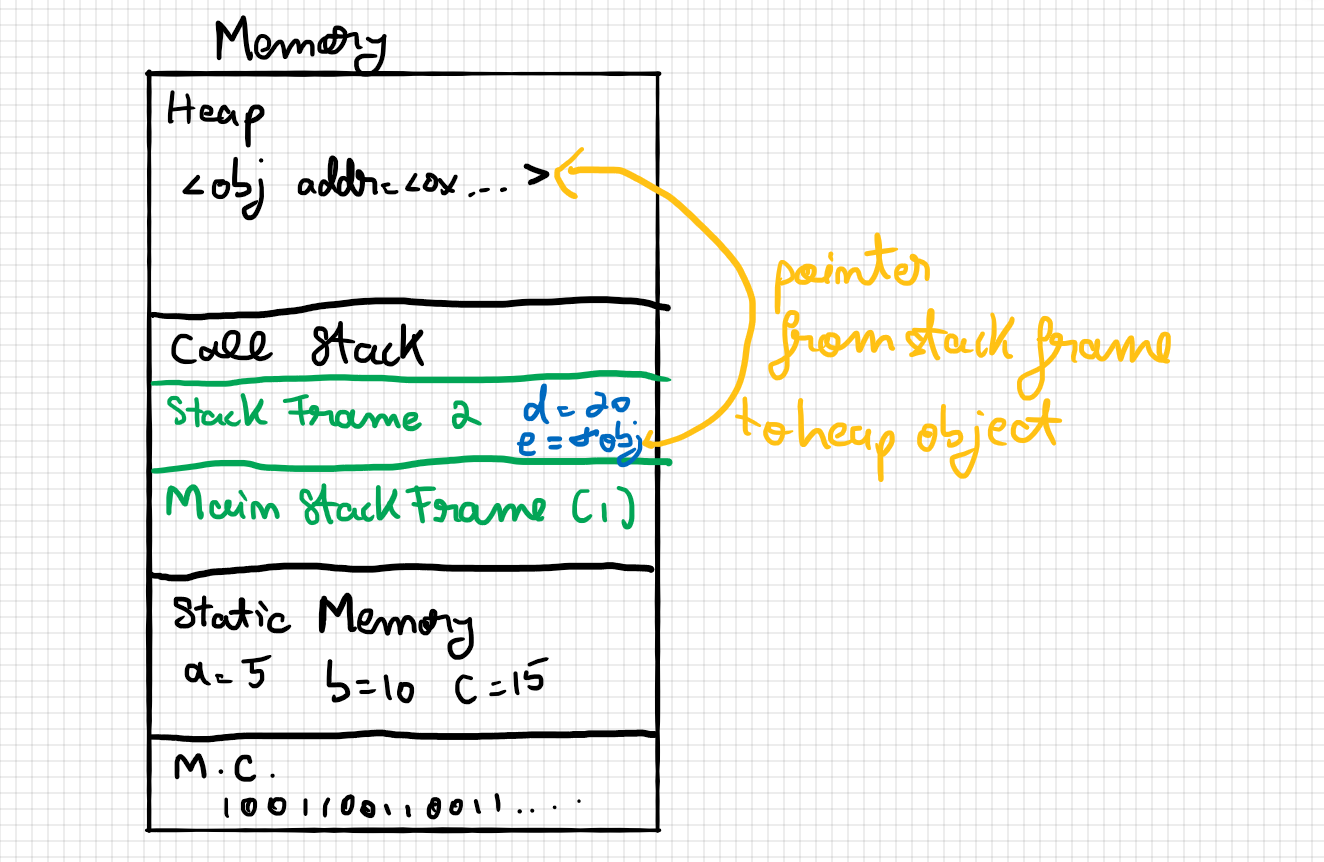 Memory
Heap
<obj addr=<0x... >
pointer
from stack frame
to heap object
Call Stack
Stack Frame 2 d=20
e=*obj
Main Stack Frame (1)
Static Memory
a=5 b=10 c=15
M.C.
1001100110011....